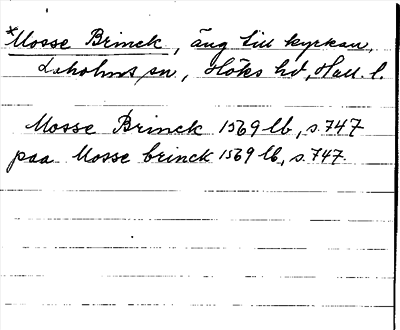 *Mosse Brinck, äng till kyrkan,
Laholms sn, Höks hd, Hall. l.
Mosse Brinck 1569 lb, s. 747
paa Mosse brinck 1569 lb, s. 747.